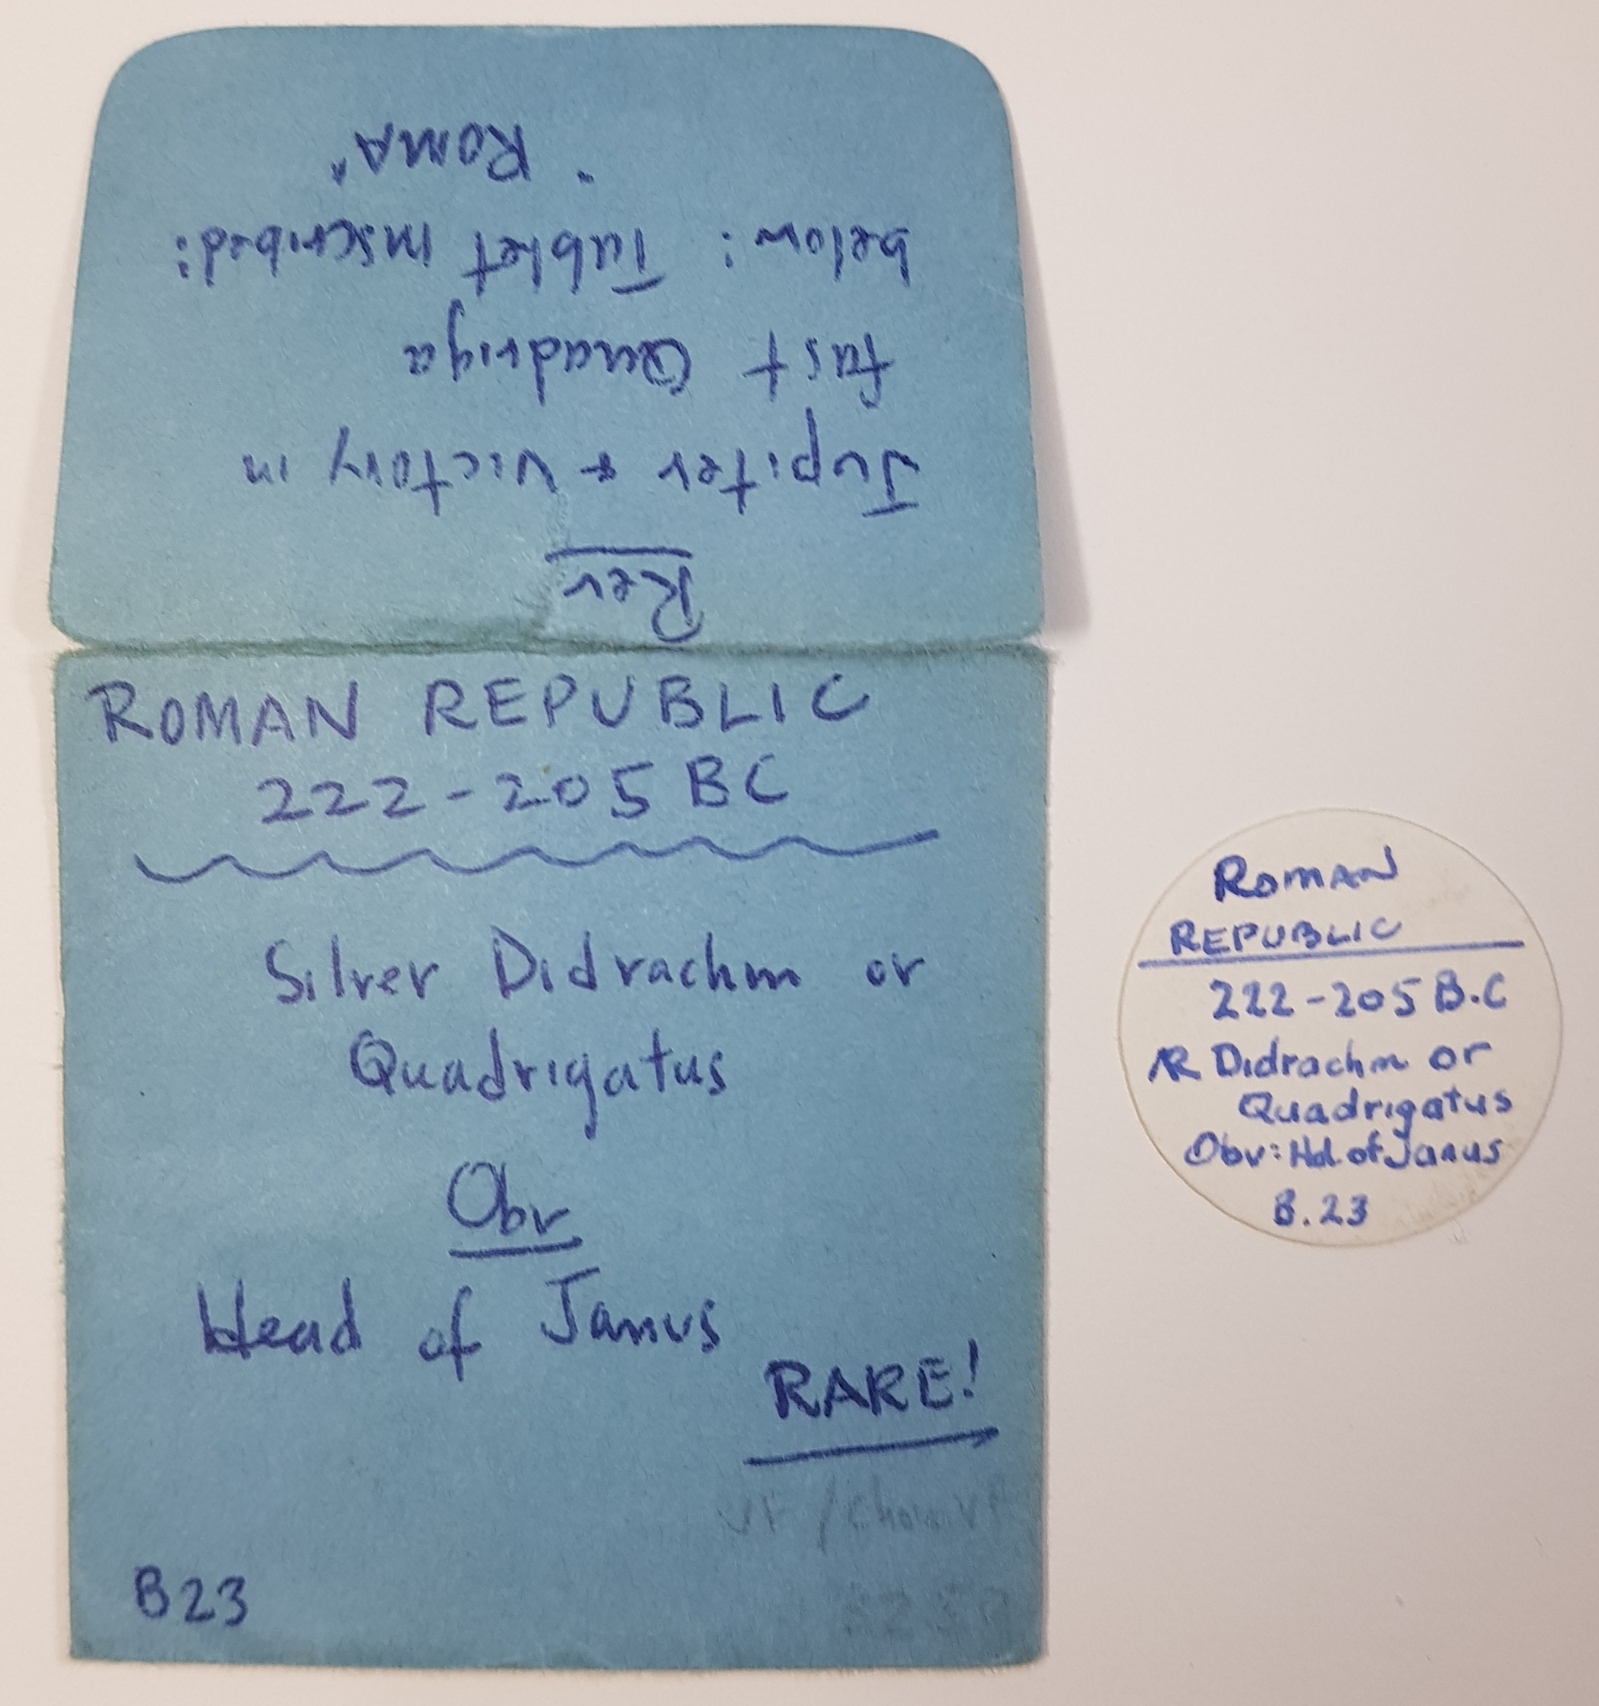 Rev
Jupiter & Victory in
fast Quadriga
below: Tablet inscribed:
"ROMA"
ROMAN REPUBLIC
222-205 BC
Silver Didrachm or
Quadrigatus
Obv
Head of Janus
RARE!
B23
ROMAN
REPUBLIC
222-205 B.C
AR Didrachm or
Quadrigatus
Obv: Hd. of Janus
B.23